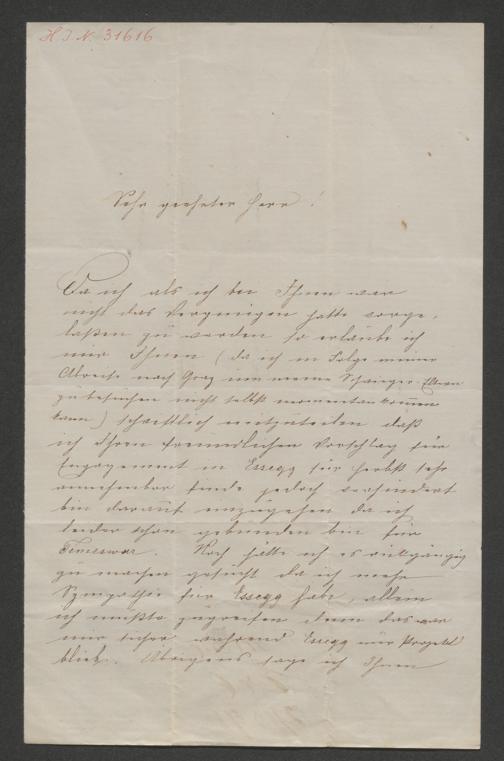 H. I. N. 31616
Sehr geehrter Herr!
Da ich als ich bei Ihnen war
nicht das Vergnügen hatte vorge-
laßen zu werden so erlaube ich
mir Ihnen (da ich in Folge meiner
Abreise nach Graz um meine Schwieger-Eltern
zu besuchen nicht selbst momentan kommen
kann) schriftlich mitzuteilen daß
ich Ihren freundlichen Vorschlag für
Engagement in Essegg für Herbst sehr
annehmbar finde jedoch verhindert
bin darauf einzugehen da ich
leider schon gebunden bin für
Temeswar. Noch hätte ich es rückgängig
zu machen gesucht da ich mehr
Sympathie für Essegg habe, allein
ich mußte zugreifen denn das war
mir sicher während Essegg nur Projekt
blieb. Übrigens sage ich Ihnen